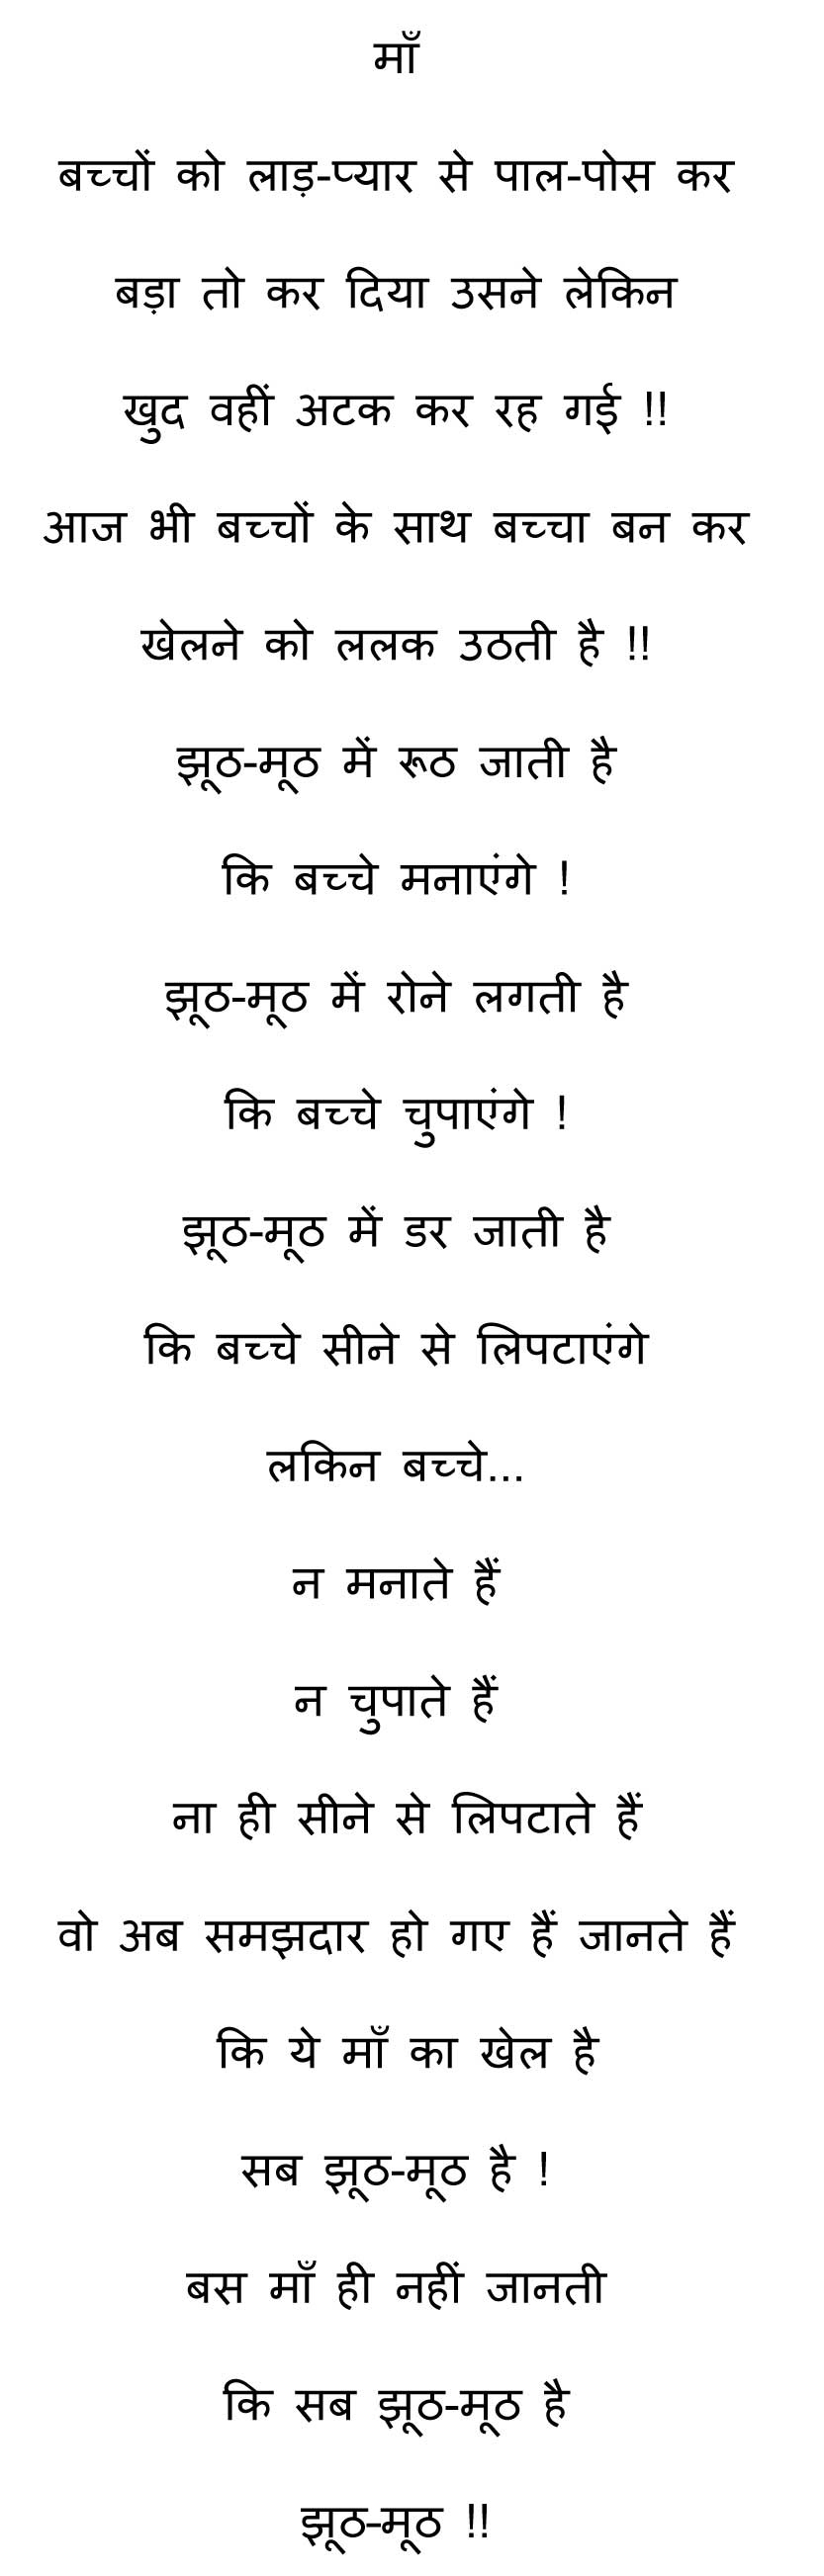 माँ
बच्चों को लाड़-प्यार से पाल-पोस कर
बड़ा तो कर दिया उसने लेकिन
खुद वहीं अटक कर रह गई !!
आज भी बच्चों के साथ बच्चा बन कर
खेलने को ललक उठती है !!
झूठ-मूठ में रूठ जाती है
कि बच्चे मनाएंगे !
झूठ-मूठ में रोने लगती है
कि बच्चे चुपाएंगे !
झूठ-मूठ में डर जाती है
कि बच्चे सीने से लिपटाएंगे
लकिन बच्चे...
न मनाते हैं
न चुपाते हैं
ना ही सीने से लिपटाते हैं
वो अब समझदार हो गए हैं जानते हैं
कि ये माँ का खेल है
सब झूठ-मूठ है !
बस माँ ही नहीं जानती
कि सब झूठ-मूठ है
झूठ-मूठ !!